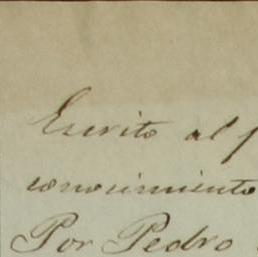 Escrito al
conocimiento
Por Pedro